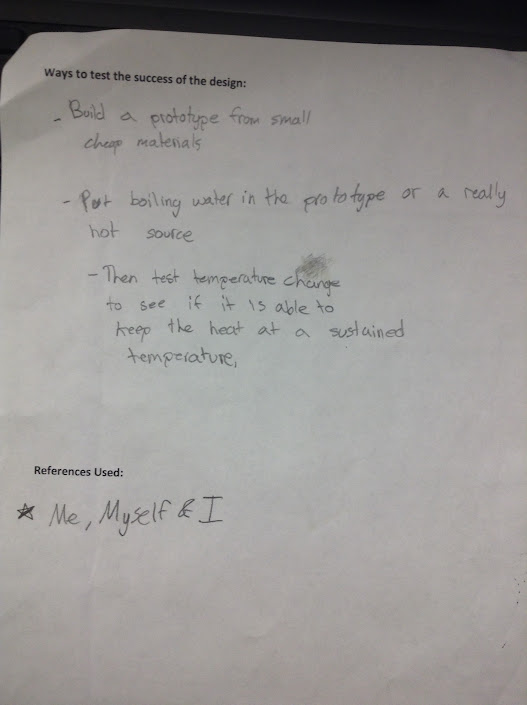 Ways to test the success of the design:
- Build a prototype from small
cheap materials
- Put boiling water in the prototype or a really
hot source
- Then test temperature change
to see if it is able to
keep the heat at a sustained
temperature,
References Used:
☆ Me, Myself & I